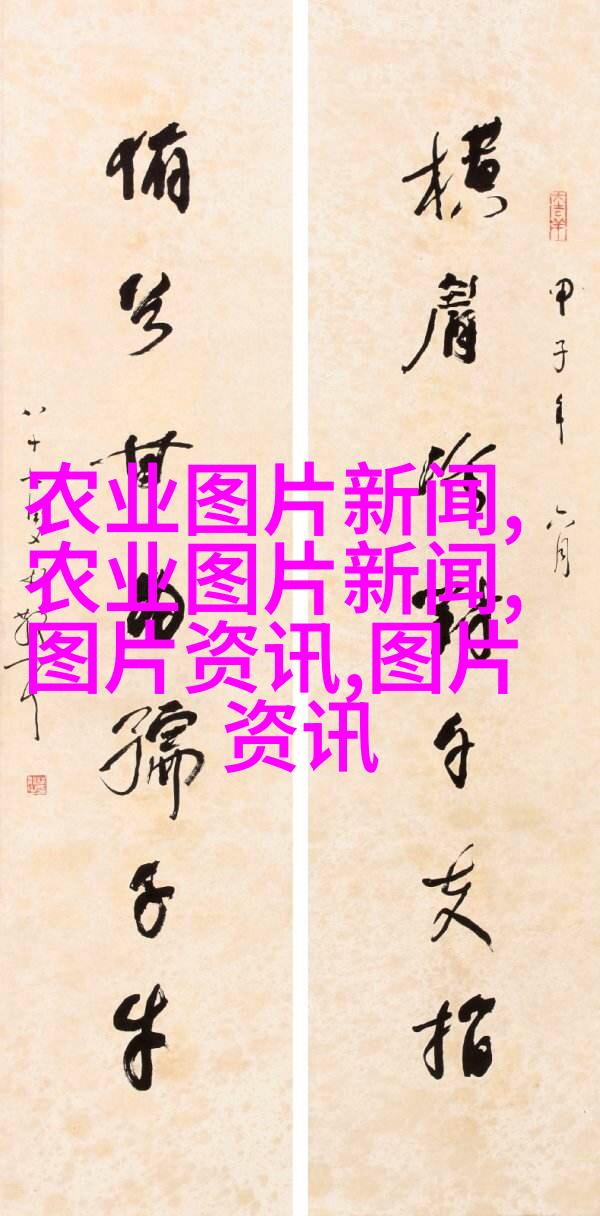 甲子年六月
横眉冷對千夫指
俯首甘为孺子牛
八十
农业图片新闻,
农业图片新闻,
图片资讯,图片
资讯